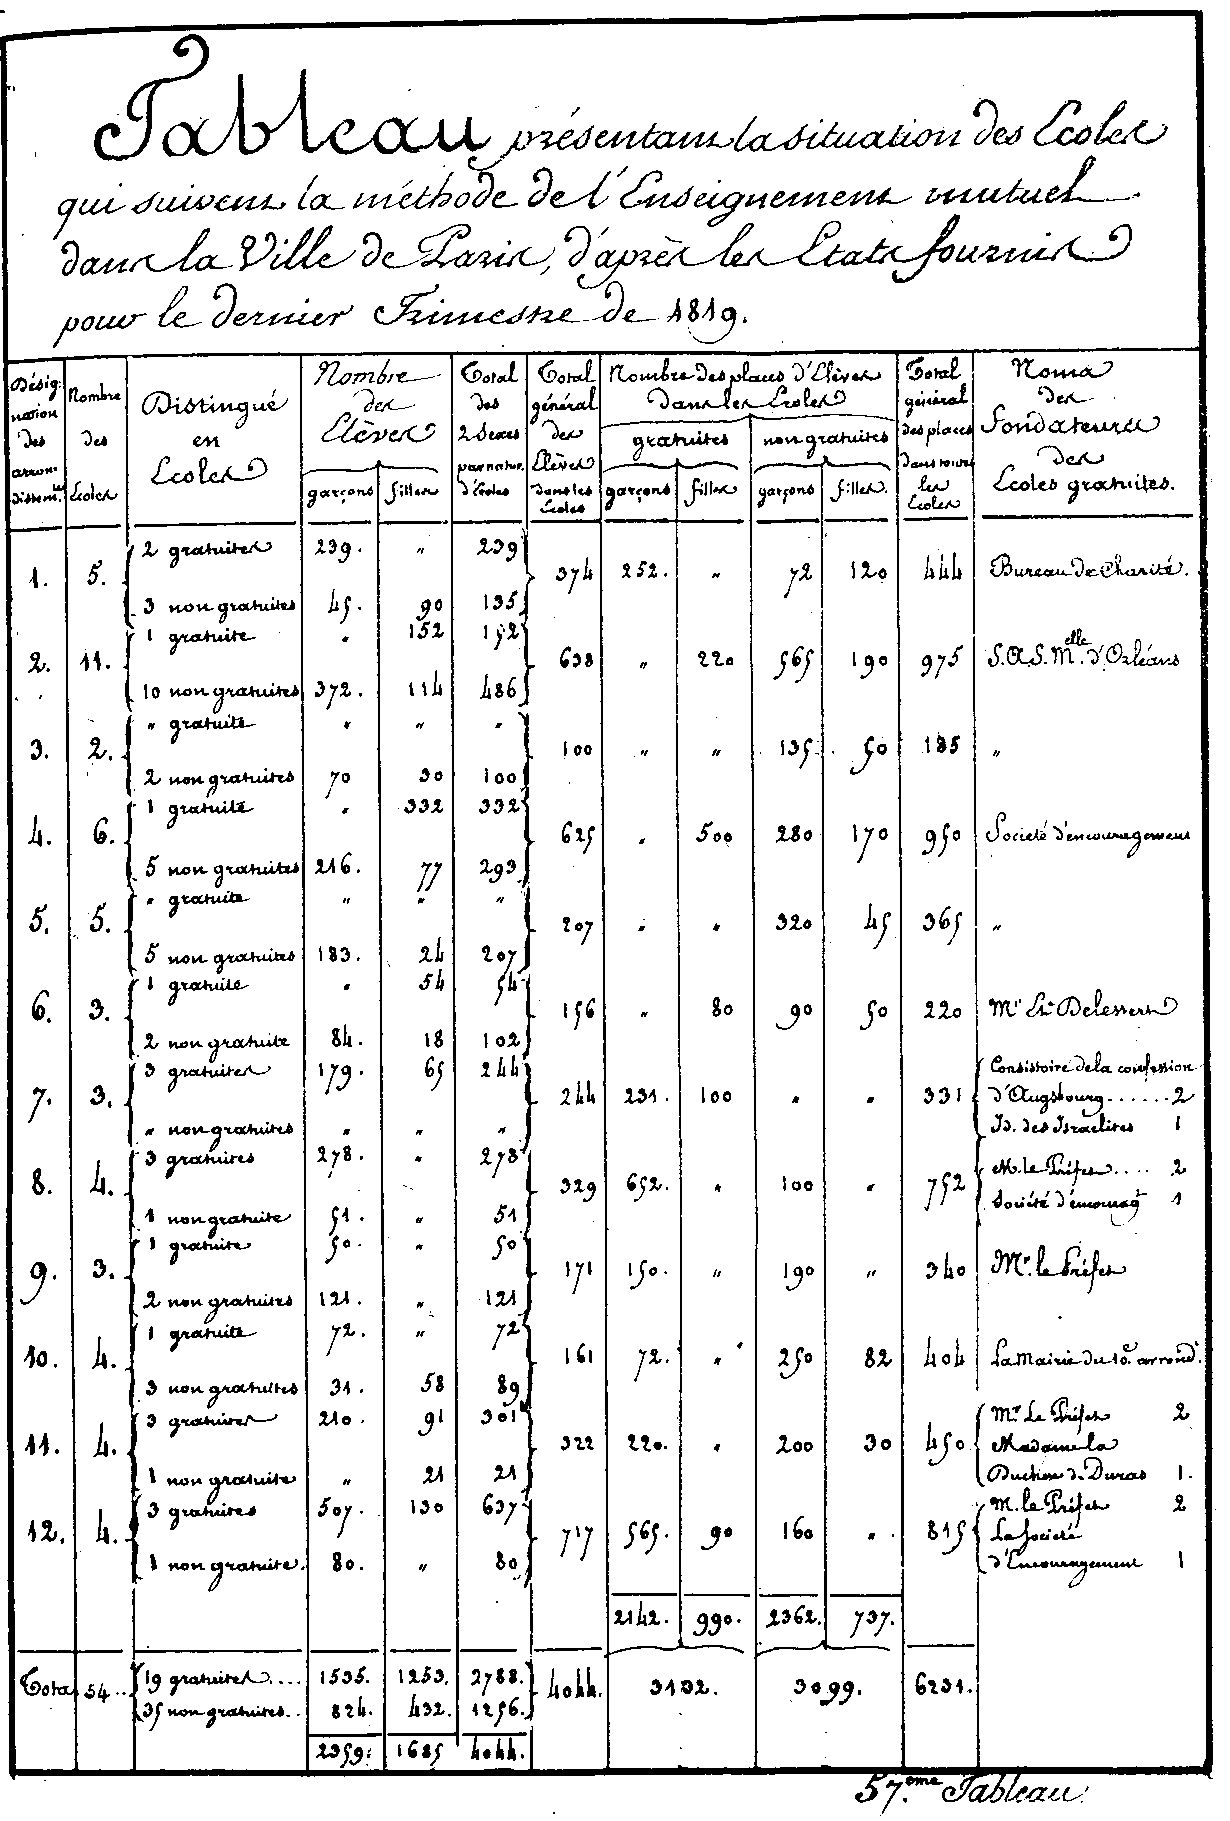 Tableau présentant la situation des Ecoles
qui suivent la méthode de l'Enseignement mutuel
dans la Ville de Paris, d'après les Etats fournis
pour le dernier Trimestre de 1819.
Désignation des arrondissem.ts | Nombre des Ecoles | Distingué en Ecoles | Nombre des Elèves garçons | filles | Total des 2 Sexes par natur. d'Ecoles | Total général des Elèves dans les Ecoles | Nombre des places d'Elèves dans les Ecoles gratuites garçons | filles | non gratuites garçons | filles. | Total général des places dans toutes les Ecoles | Noms des Fondateurs des Ecoles gratuites.
2 gratuites 239. " 239
1. 5. 374 252. " 72 120 444 Bureau de Charité.
3 non gratuites 45. 90 135
1 gratuite " 152 152
2. 11. 638 " 220 565 190 975 S.A.S. Melle. d'Orléans
10 non gratuites 372. 114 486
" gratuite " " "
3. 2. 100 " " 135. 50 185 "
2 non gratuites 70 30 100
1 gratuite " 332 332
4. 6. 625 " 500 280 170 950 Societé d'encouragement
5 non gratuites 216. 77 293
" gratuite " " "
5. 5. 207 " " 320 45 365 "
5 non gratuites 183. 24 207
1 gratuite " 54 54
6. 3. 156 " 80 90 50 220 Mr Delessert
2 non gratuite 84. 18 102
3 gratuites 179. 65 244
7. 3. 244 231. 100 " " 331 Consistoire de la confession
d'Augsbourg......2
Id. des Israelites 1
" non gratuites " " "
3 gratuites 278. " 278
8. 4. 329 652. " 100 " 752 M. le Préfet.... 2
Société d'encourag.t 1
1 non gratuite 51. " 51
1 gratuite 50. " 50
9. 3. 171 150. " 190 " 340 Mr. le Préfet
2 non gratuites 121. " 121
1 gratuite 72. " 72
10. 4. 161 72. " 250 82 404 La Mairie du 10.e arrond.t
3 non gratuites 31. 58 89
3 gratuites 210. 91 301
11. 4. 322 220. " 200 30 450 Mr Le Préfet 2
Madame la
Duchesse de Duras 1.
1 non gratuite " 21 21
3 gratuites 507. 130 637
12. 4. 717 565. 90 160 " 815 M. le Préfet 2
La Société
d'Encouragement 1
1 non gratuite. 80. " 80
2142. 990. 2362. 737.
Total 54.. 19 gratuites.... 1535. 1253. 2788. 4044. 3132. 3099. 6231.
35 non gratuites.. 824. 432. 1256.
2359. 1685 4044.
57.eme Tableau.